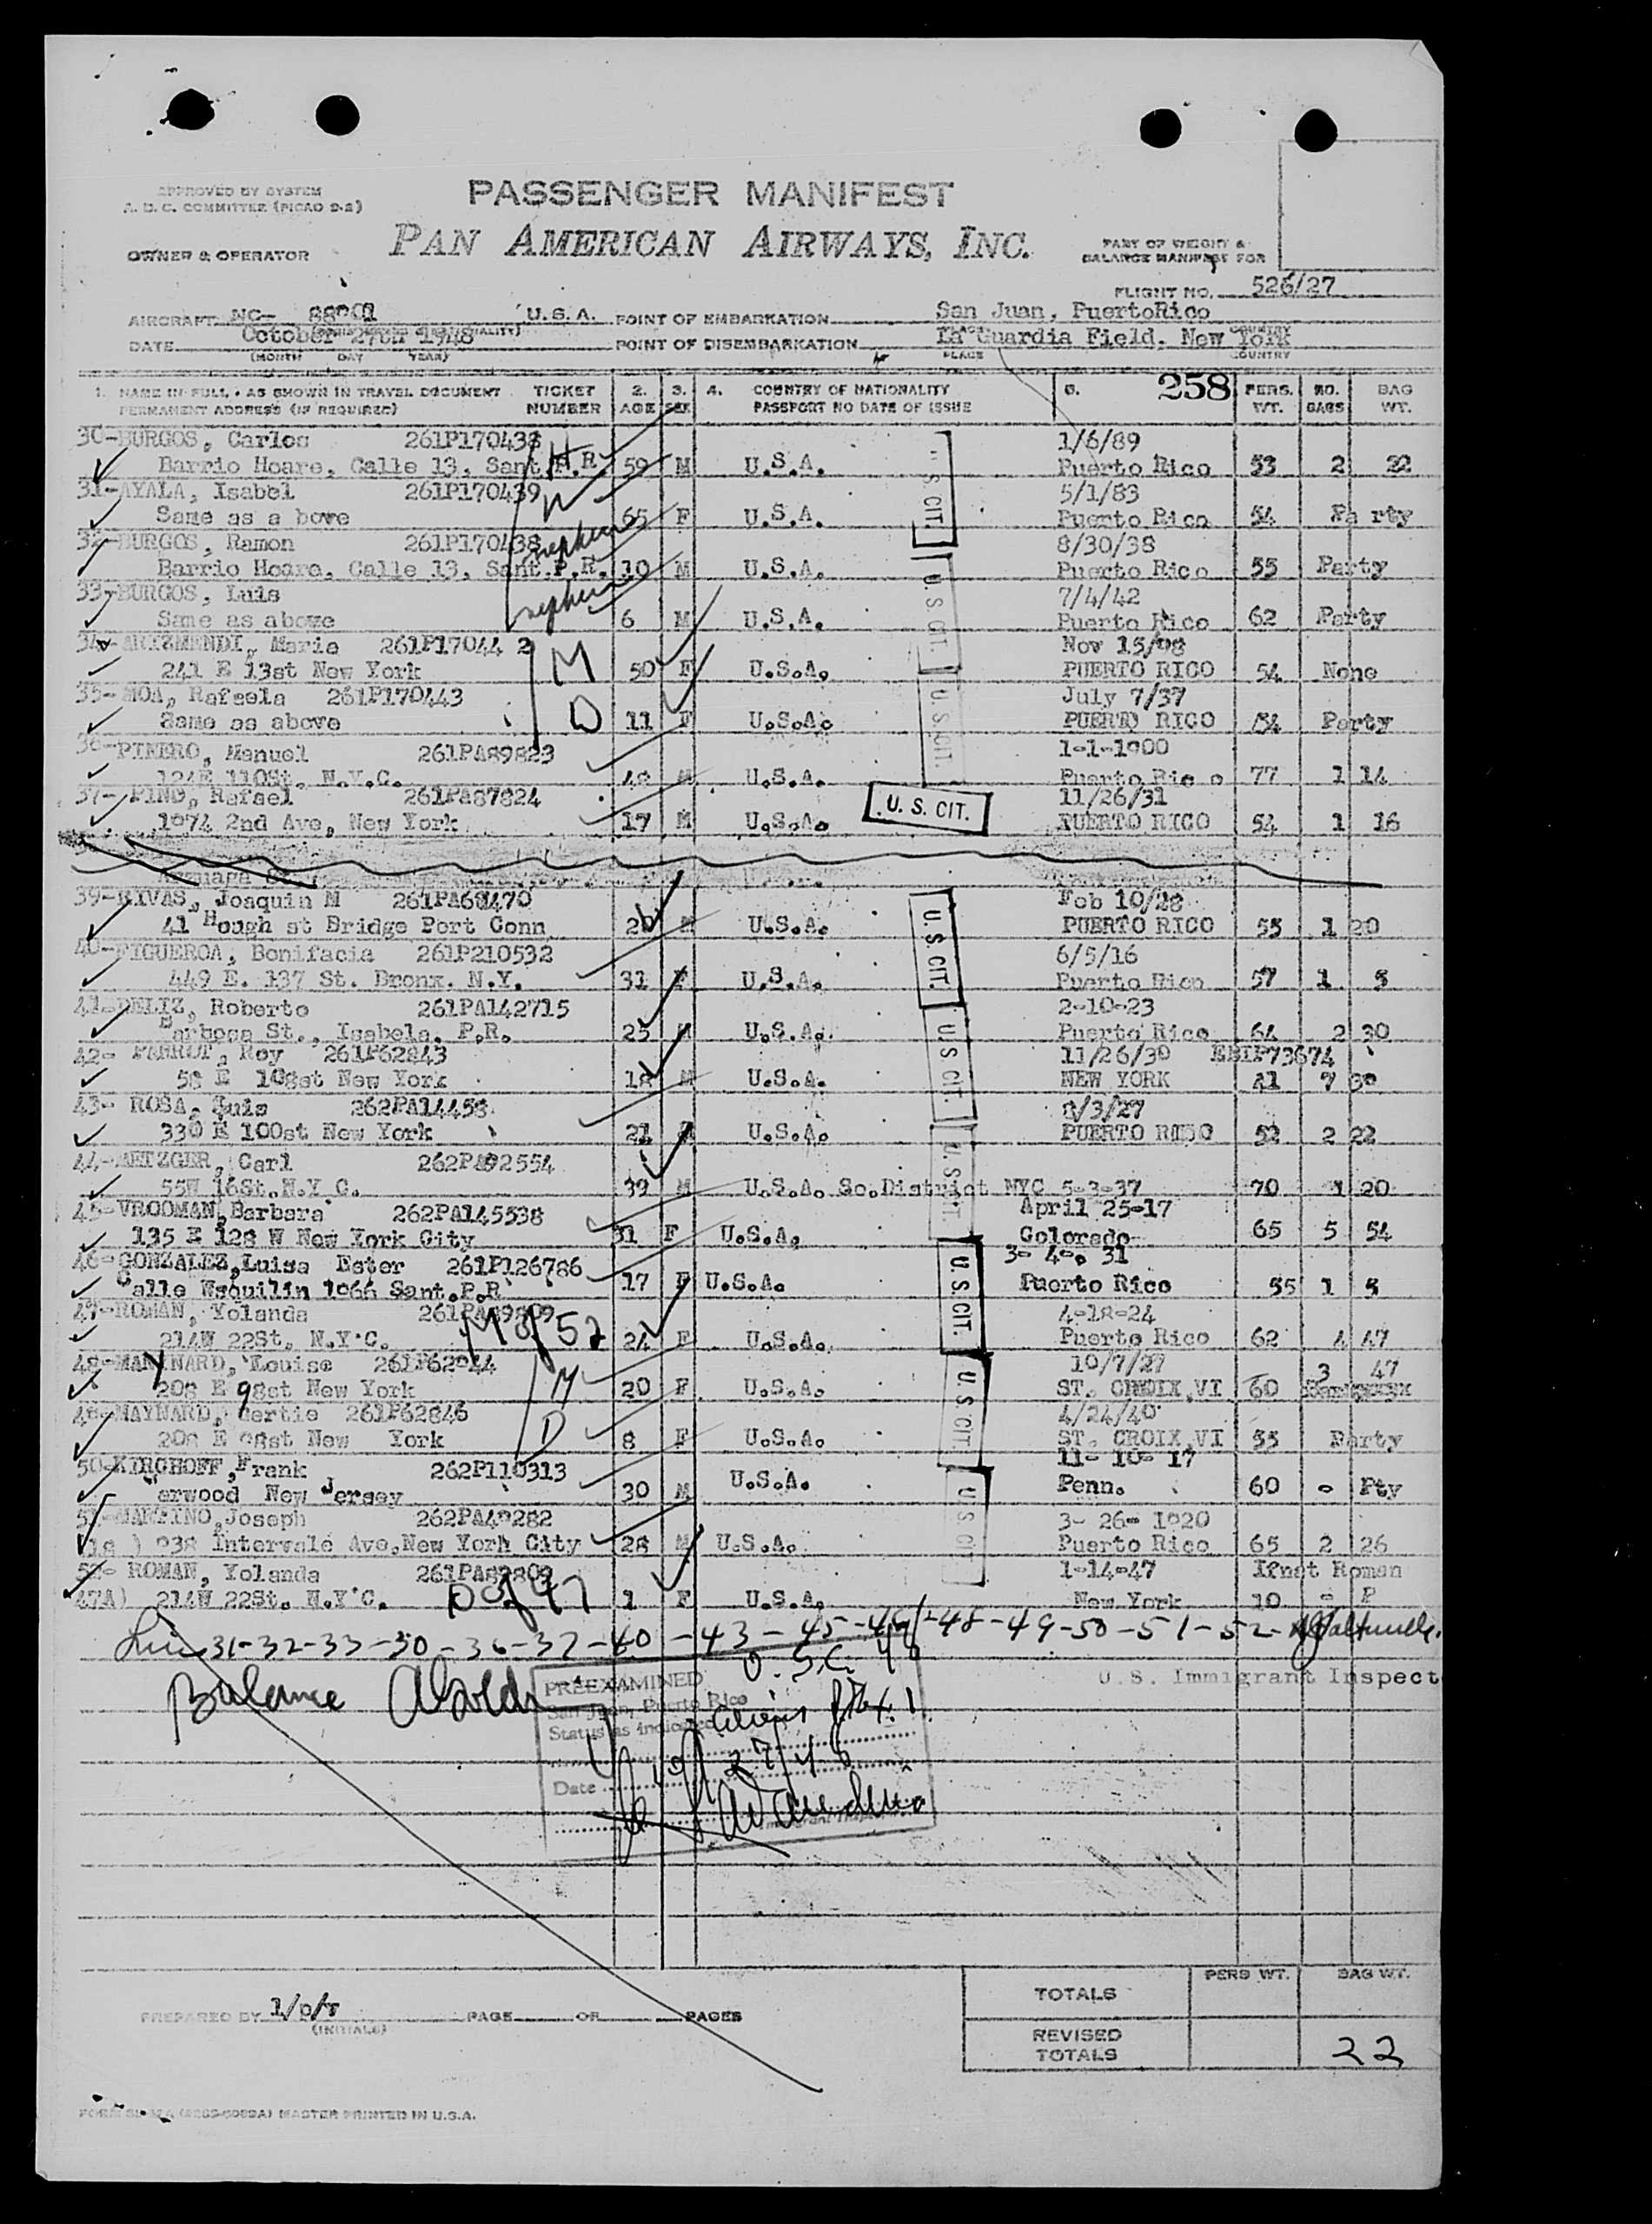 APPROVED BY SYSTEM
A. D. C. COMMITTEE (PICAO 9-2)
PASSENGER MANIFEST
OWNER & OPERATOR
PAN AMERICAN AIRWAYS, INC.
PART OF WEIGHT &
BALANCE MANIFEST FOR
FLIGHT NO. 526/27
AIRCRAFT NC- U.S.A. POINT OF EMBARKATION San Juan, PuertoRico
DATE October 27th 1948 POINT OF DISEMBARKATION La Guardia Field, New York
(MONTH DAY YEAR) PLACE COUNTRY
1. NAME IN FULL - AS SHOWN IN TRAVEL DOCUMENT TICKET 2. 3. 4. COUNTRY OF NATIONALITY 5. 258 PERS. NO. BAG
PERMANENT ADDRESS (IF REQUIRED) NUMBER AGE SEX PASSPORT NO DATE OF ISSUE WT. BAGS WT.
30-BURGOS, Carlos 261P170438 H 1/6/89
Barrio Hoare, Calle 13, Sant.P.R. 59 M U.S.A. Puerto Rico 53 2 22
31-AYALA, Isabel 261P170439 W 5/1/83
Same as a bove 65 F U.S.A. Puerto Rico 54 Pa rty
32-BURGOS, Ramon 261P170438 nephew 8/30/38
Barrio Hoare, Calle 13, Sant.P.R. 10 M U.S.A. Puerto Rico 55 Party
33-BURGOS, Luis nephew 7/4/42
Same as above 6 M U.S.A. Puerto Rico 62 Party
34-ARIZMENDI, Maria 261P17044 2 M Nov 15/98
241 E 13st New York 50 F U.S.A. PUERTO RICO 54 None
35-MOA, Rafaela 261P170443 D July 7/37
Same as above 11 F U.S.A. PUERTO RICO 54 Party
36-PINERO, Manuel 261PA89823 1-1-1900
124E 110St. N.Y.C. 48 M U.S.A. Puerto Rico 77 1 14
37- PINO, Rafael 261PA87824 11/26/31
1974 2nd Ave, New York 17 M U.S.A. U.S. CIT. PUERTO RICO 54 1 16
39-RIVAS, Joaquin M Feb 10/28
41 Hough st Bridge Port Conn 20 M U.S.A. PUERTO RICO 55 1 20
40-FIGUEROA, Bonifacia 261P210532 6/5/16
449 E. 137 St. Bronx. N.Y. 31 F U.S.A. Puerto Rico 57 1 5
41-DELIZ, Roberto 261PA142715 2-10-23
Barbosa St., Isabela, P.R. 25 M U.S.A. Puerto Rico 64 2 30
42- Roy 261P62843 11/26/30 EBIP73674
58 E 108st New York 18 M U.S.A. NEW YORK 41 7 30
43- ROSA, Luis 262PA14458 8/3/27
330 E 100st New York 21 M U.S.A. PUERTO RICO 52 2 22
44-METZGER, Carl 262PA92554
55W 16St.N.Y C. 39 M U.S.A. So.District NYC 5-3-37 70 1 20
45-VROOMAN,Barbara 262PA145538 April 25-17
135 E 128 W New York City 31 F U.S.A. Colorado 65 5 54
46-GONZALEZ,Luisa Ester 261P126786 3- 4-. 31
Calle Esquilin 1966 Sant.P.R 17 F U.S.A. Puerto Rico 55 1 5
47-ROMAN, Yolanda 261PA89809 4-18-24
214W 22St. N.Y'C. M of 52 24 F U.S.A. Puerto Rico 62 4 47
48-MAYNARD, Louise 261P62844 M 10/7/27 3 47
208 E 98st New York 20 F U.S.A. ST. CROIX,VI 60
49-MAYNARD, Gertie 261P62846 D 4/24/40
208 E 98st New York 8 F U.S.A. ST. CROIX,VI 55 Party
50-KIRCHOFF,Frank 262P110313 11- 10- 17
Norwood New Jersey 30 M U.S.A. Penn. 60 - Pty
51-MARTINO,Joseph 262PA49282 3- 26- 1920
938 Intervale Ave,New York City 28 M U.S.A. Puerto Rico 65 2 26
52- ROMAN, Yolanda 261PA89809 1-14-47 Ifnat Roman
47A) 214W 22St. N.Y'C. D of 47 1 F U.S.A. New York 10 - P
U.S. CIT.
U.S. CIT.
U.S. CIT.
U.S. CIT.
U.S. CIT.
U.S. CIT.
U.S. CIT.
U.S. CIT.
U.S. CIT.
Line 31-32-33-30-36-37-40-43-45-46-48-49-50-51-52-
U.S. Immigrant Inspect
Balance Aboldi
PREEXAMINED
San Juan, Puerto Rico
Status as indicated
Date
Immigrant Inspector
PERS WT. BAG WT.
TOTALS
PREPARED BY PAGE OF PAGES
(INITIALS)
REVISED
TOTALS 22
MASTER PRINTED IN U.S.A.